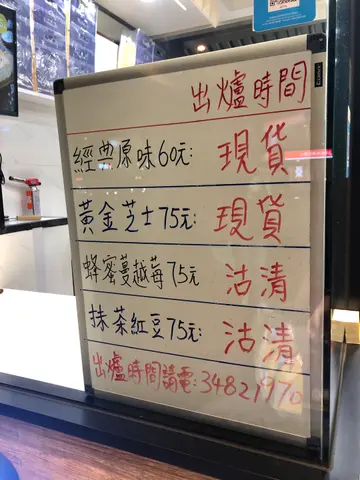 出爐時間
經典原味60元: 現貨
黃金芝士75元: 現貨
蜂蜜蔓越莓75元 沽清
抹茶紅豆75元: 沽清
出爐時間請電:34821970